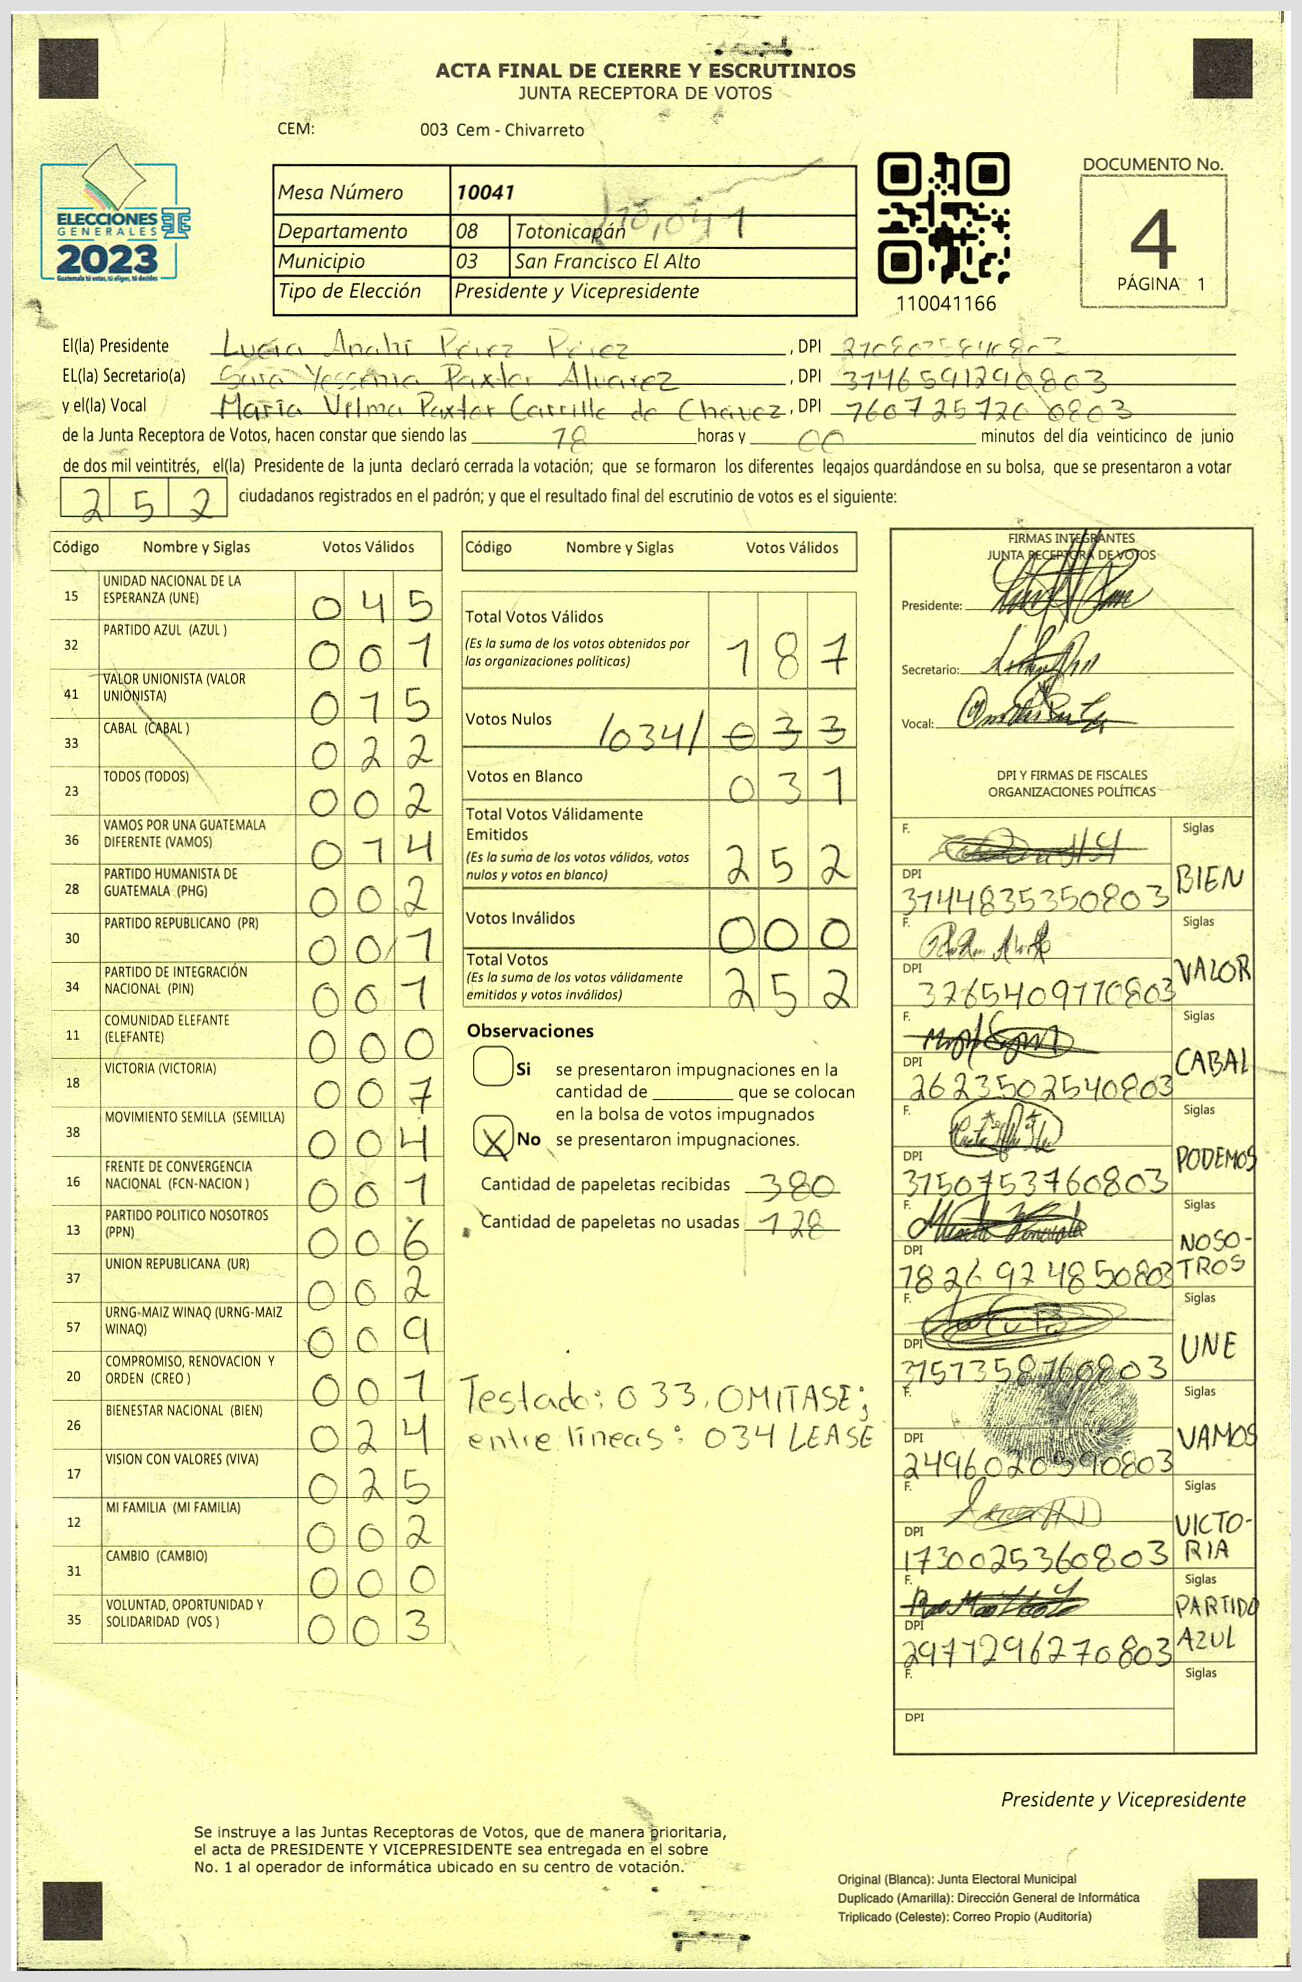 ACTA FINAL DE CIERRE Y ESCRUTINIOS
JUNTA RECEPTORA DE VOTOS
CEM: 003 Cem - Chivarreto
ELECCIONES
GENERALES
2023
Guatemala tú votas, tú eliges, tú decides
Mesa Número 10041
10,041
Departamento 08 Totonicapán
Municipio 03 San Francisco El Alto
Tipo de Elección Presidente y Vicepresidente
110041166
DOCUMENTO No.
4
PÁGINA 1
El(la) Presidente Lucia Anahi Perez Perez, DPI
EL(la) Secretario(a) Sara Yessenia Paxtor Alvarez, DPI 3146591290803
y el(la) Vocal Maria Vilma Paxtor Carrillo de Chavez, DPI 1607257200803
de la Junta Receptora de Votos, hacen constar que siendo las 18 horas y 00 minutos del día veinticinco de junio
de dos mil veintitrés, el(la) Presidente de la junta declaró cerrada la votación; que se formaron los diferentes legajos quardándose en su bolsa, que se presentaron a votar
252 ciudadanos registrados en el padrón; y que el resultado final del escrutinio de votos es el siguiente:
Código Nombre y Siglas Votos Válidos
15 UNIDAD NACIONAL DE LA ESPERANZA (UNE) 045
32 PARTIDO AZUL (AZUL ) 001
41 VALOR UNIONISTA (VALOR UNIONISTA) 015
33 CABAL (CABAL ) 022
23 TODOS (TODOS) 002
36 VAMOS POR UNA GUATEMALA DIFERENTE (VAMOS) 014
28 PARTIDO HUMANISTA DE GUATEMALA (PHG) 002
30 PARTIDO REPUBLICANO (PR) 001
34 PARTIDO DE INTEGRACIÓN NACIONAL (PIN) 001
11 COMUNIDAD ELEFANTE (ELEFANTE) 000
18 VICTORIA (VICTORIA) 007
38 MOVIMIENTO SEMILLA (SEMILLA) 004
16 FRENTE DE CONVERGENCIA NACIONAL (FCN-NACION ) 001
13 PARTIDO POLITICO NOSOTROS (PPN) 006
37 UNION REPUBLICANA (UR) 002
57 URNG-MAIZ WINAQ (URNG-MAIZ WINAQ) 009
20 COMPROMISO, RENOVACION Y ORDEN (CREO ) 001
26 BIENESTAR NACIONAL (BIEN) 024
17 VISION CON VALORES (VIVA) 025
12 MI FAMILIA (MI FAMILIA) 002
31 CAMBIO (CAMBIO) 000
35 VOLUNTAD, OPORTUNIDAD Y SOLIDARIDAD (VOS ) 003
Código Nombre y Siglas Votos Válidos
Total Votos Válidos 187
(Es la suma de los votos obtenidos por
las organizaciones políticas)
Votos Nulos /034/ 033
Votos en Blanco 031
Total Votos Válidamente
Emitidos
(Es la suma de los votos válidos, votos
nulos y votos en blanco) 252
Votos Inválidos 000
Total Votos
(Es la suma de los votos válidamente
emitidos y votos inválidos) 252
Observaciones
Si se presentaron impugnaciones en la
cantidad de ________ que se colocan
en la bolsa de votos impugnados
X No se presentaron impugnaciones.
Cantidad de papeletas recibidas 380
Cantidad de papeletas no usadas 128
Testado: 033. OMITASE;
entre lineas: 034 LEASE
FIRMAS INTEGRANTES
JUNTA RECEPTORA DE VOTOS
Presidente:
Secretario:
Vocal:
DPI Y FIRMAS DE FISCALES
ORGANIZACIONES POLÍTICAS
F. Siglas
DPI 3144835350803 BIEN
F. Siglas
DPI 3265409770803 VALOR
F. Siglas
DPI 2623502540803 CABAL
F. Siglas
DPI 3150753760803 PODEMOS
F. Siglas
DPI 1826924850803 NOSO-
TROS
F. Siglas
DPI 3151358760803 UNE
F. Siglas
DPI VAMOS
F. Siglas
DPI 1730025360803 VICTO-
RIA
F. Siglas
DPI 2971296270803 PARTIDO
AZUL
F. Siglas
DPI
Presidente y Vicepresidente
Se instruye a las Juntas Receptoras de Votos, que de manera prioritaria,
el acta de PRESIDENTE Y VICEPRESIDENTE sea entregada en el sobre
No. 1 al operador de informática ubicado en su centro de votación.
Original (Blanca): Junta Electoral Municipal
Duplicado (Amarilla): Dirección General de Informática
Triplicado (Celeste): Correo Propio (Auditoría)